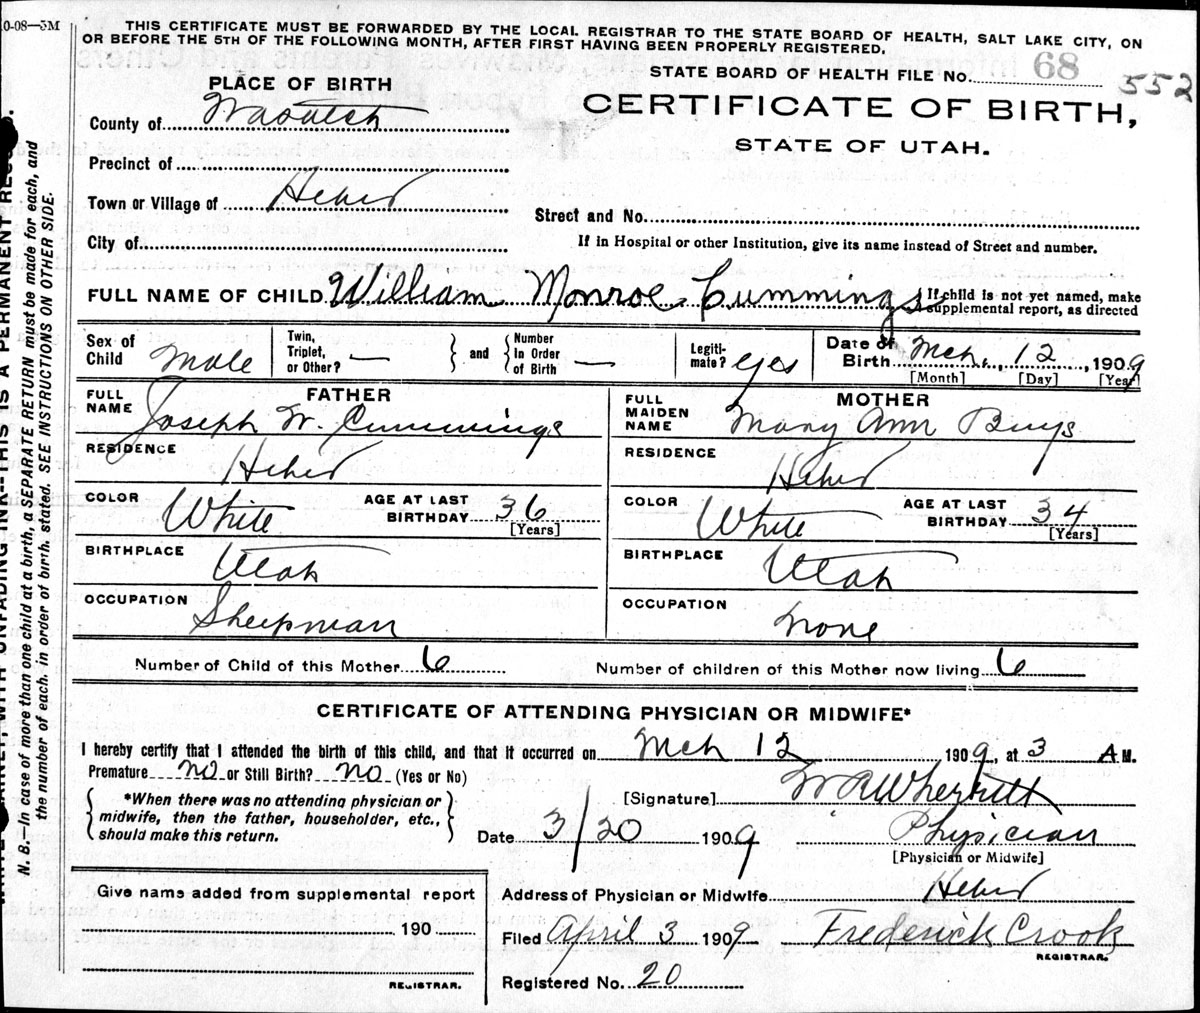 10-08—5M
THIS CERTIFICATE MUST BE FORWARDED BY THE LOCAL REGISTRAR TO THE STATE BOARD OF HEALTH, SALT LAKE CITY, ON
OR BEFORE THE 5TH OF THE FOLLOWING MONTH, AFTER FIRST HAVING BEEN PROPERLY REGISTERED.
STATE BOARD OF HEALTH FILE No. 68 552
PLACE OF BIRTH
CERTIFICATE OF BIRTH,
STATE OF UTAH.
County of Wasatch
Precinct of
Town or Village of Heber
Street and No.
City of
If in Hospital or other Institution, give its name instead of Street and number.
FULL NAME OF CHILD William Monroe Cummings
If child is not yet named, make
supplemental report, as directed
Sex of Child Male
Twin, Triplet, or Other? — and Number In Order of Birth —
Legiti-mate? yes
Date of Birth Mch. 12, 1909
[Month] [Day] [Year]
FATHER
FULL NAME Joseph W. Cummings
RESIDENCE Heber
COLOR White AGE AT LAST BIRTHDAY 36 [Years]
BIRTHPLACE Utah
OCCUPATION Sheepman
MOTHER
FULL MAIDEN NAME Mary Ann Buys
RESIDENCE Heber
COLOR White AGE AT LAST BIRTHDAY 34 [Years]
BIRTHPLACE Utah
OCCUPATION None
Number of Child of this Mother 6 Number of children of this Mother now living 6
CERTIFICATE OF ATTENDING PHYSICIAN OR MIDWIFE*
I hereby certify that I attended the birth of this child, and that it occurred on Mch 12 1909, at 3 A M.
Premature no or Still Birth? no (Yes or No)
*When there was no attending physician or
midwife, then the father, householder, etc.,
should make this return.
[Signature] W R Wherritt
Date 3/20 1909 Physician
[Physician or Midwife]
Give name added from supplemental report
190
REGISTRAR.
Address of Physician or Midwife Heber
Filed April 3 1909 Frederick Crook
REGISTRAR.
Registered No. 20
N. B.—In case of more than one child at a birth, a SEPARATE RETURN must be made for each, and
the number of each, in order of birth, stated. SEE INSTRUCTIONS ON OTHER SIDE.
WITH UNFADING INK--THIS IS A PERMANENT